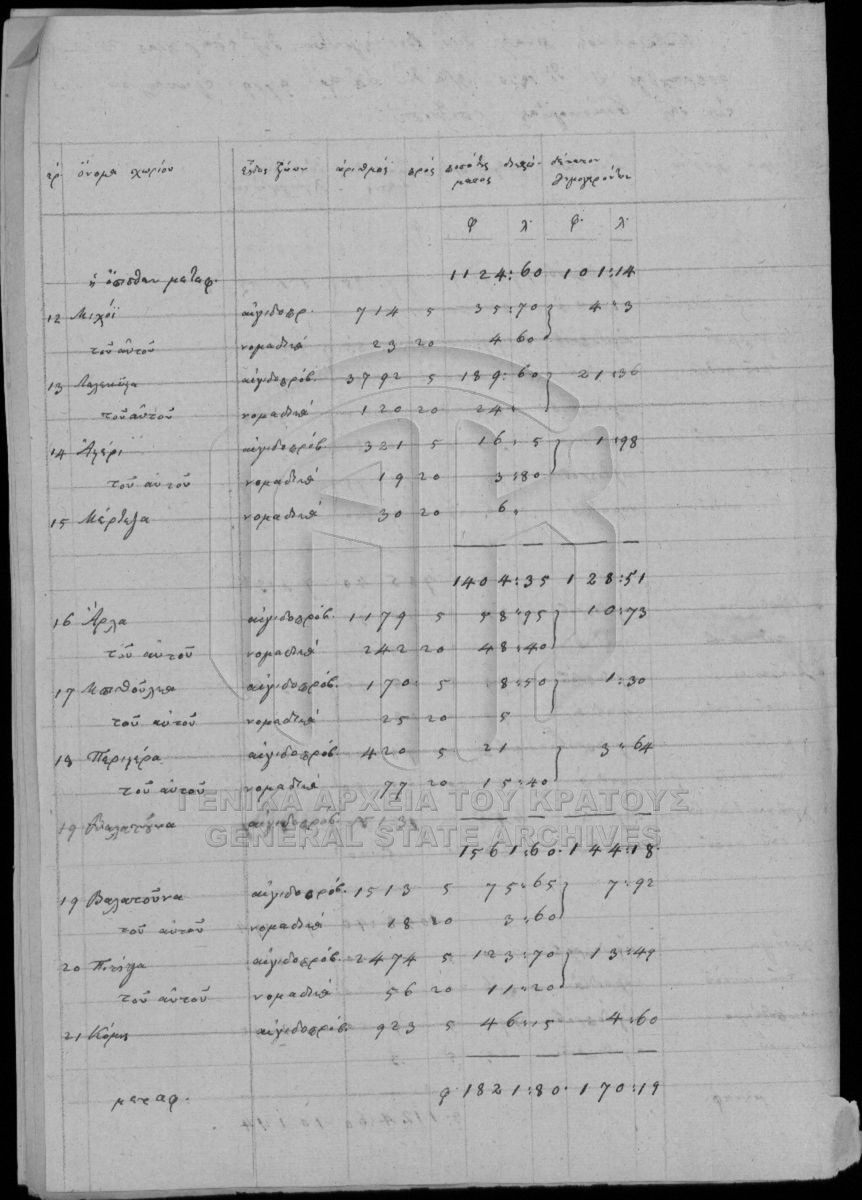 ἀρ. ὄνομα χωρίου εἶδος ζώων ἀριθμὸς πρὸς ποσότης δεκάτου
ματος δημογερόντων
φ λ. φ. λ.
ἡ ὄπισθεν μεταφ. 1124:60 101:14
12 Μιχόϊ αἰγιδοπρ. 714 5 35:70 4:3
τοῦ αὐτοῦ νομαδικὰ 23 20 4 60
13 αἰγιδοπρόβ. 3792 5 189:60 21:36
τοῦ αὐτοῦ νομαδικὰ 120 20 24"
14 αἰγιδοπρόβ. 321 5 16:5 1:98
τοῦ αὐτοῦ νομαδικὰ 19 20 3:80
15 νομαδικὰ 30 20 6"
1404:35 128:51
16 Ἄρλα αἰγιδοπρόβ. 1179 5 58:95 10:73
τοῦ αὐτοῦ νομαδικὰ 242 20 48:40
17 αἰγιδοπρόβ. 170 5 8:50 1:30
τοῦ αὐτοῦ νομαδικὰ 25 20 5
18 αἰγιδοπρόβ. 420 5 21 3:64
τοῦ αὐτοῦ νομαδικὰ 77 20 15:40
19 αἰγιδοπρόβ.
1561:60. 144:18.
19 Βαλατοῦνα αἰγιδοπρόβ. 1513 5 75:65 7:92
τοῦ αὐτοῦ νομαδικὰ 18 20 3:60
20 αἰγιδοπρόβ. 2474 5 123:70 13:49
τοῦ αὐτοῦ νομαδικὰ 56 20 11:20
21 Κόμη αἰγιδοπρόβ. 923 5 46:15 4:60
μεταφ. φ 1821:80. 170:19
ΓΕΝΙΚΑ ΑΡΧΕΙΑ ΤΟΥ ΚΡΑΤΟΥΣ
GENERAL STATE ARCHIVES